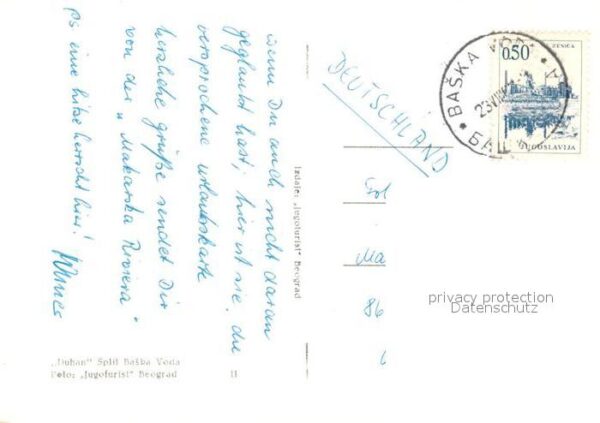 wenn Du auch nicht daran
geglaubt hast, hier ist sie, die
versprochene Urlaubskarte
herzliche Grüße sendet Dir
von der „Makarska Riviera“
PS eine hitze herrscht hier!
DEUTSCHLAND
BAŠKA VODA
23.VII
0,50
ZENICA
JUGOSLAVIJA
Izdaje: „Jugoturist“ Beograd
86
6
privacy protection
Datenschutz
„Duhan“ Split Baška Voda
Foto: „Jugoturist“ Beograd 11